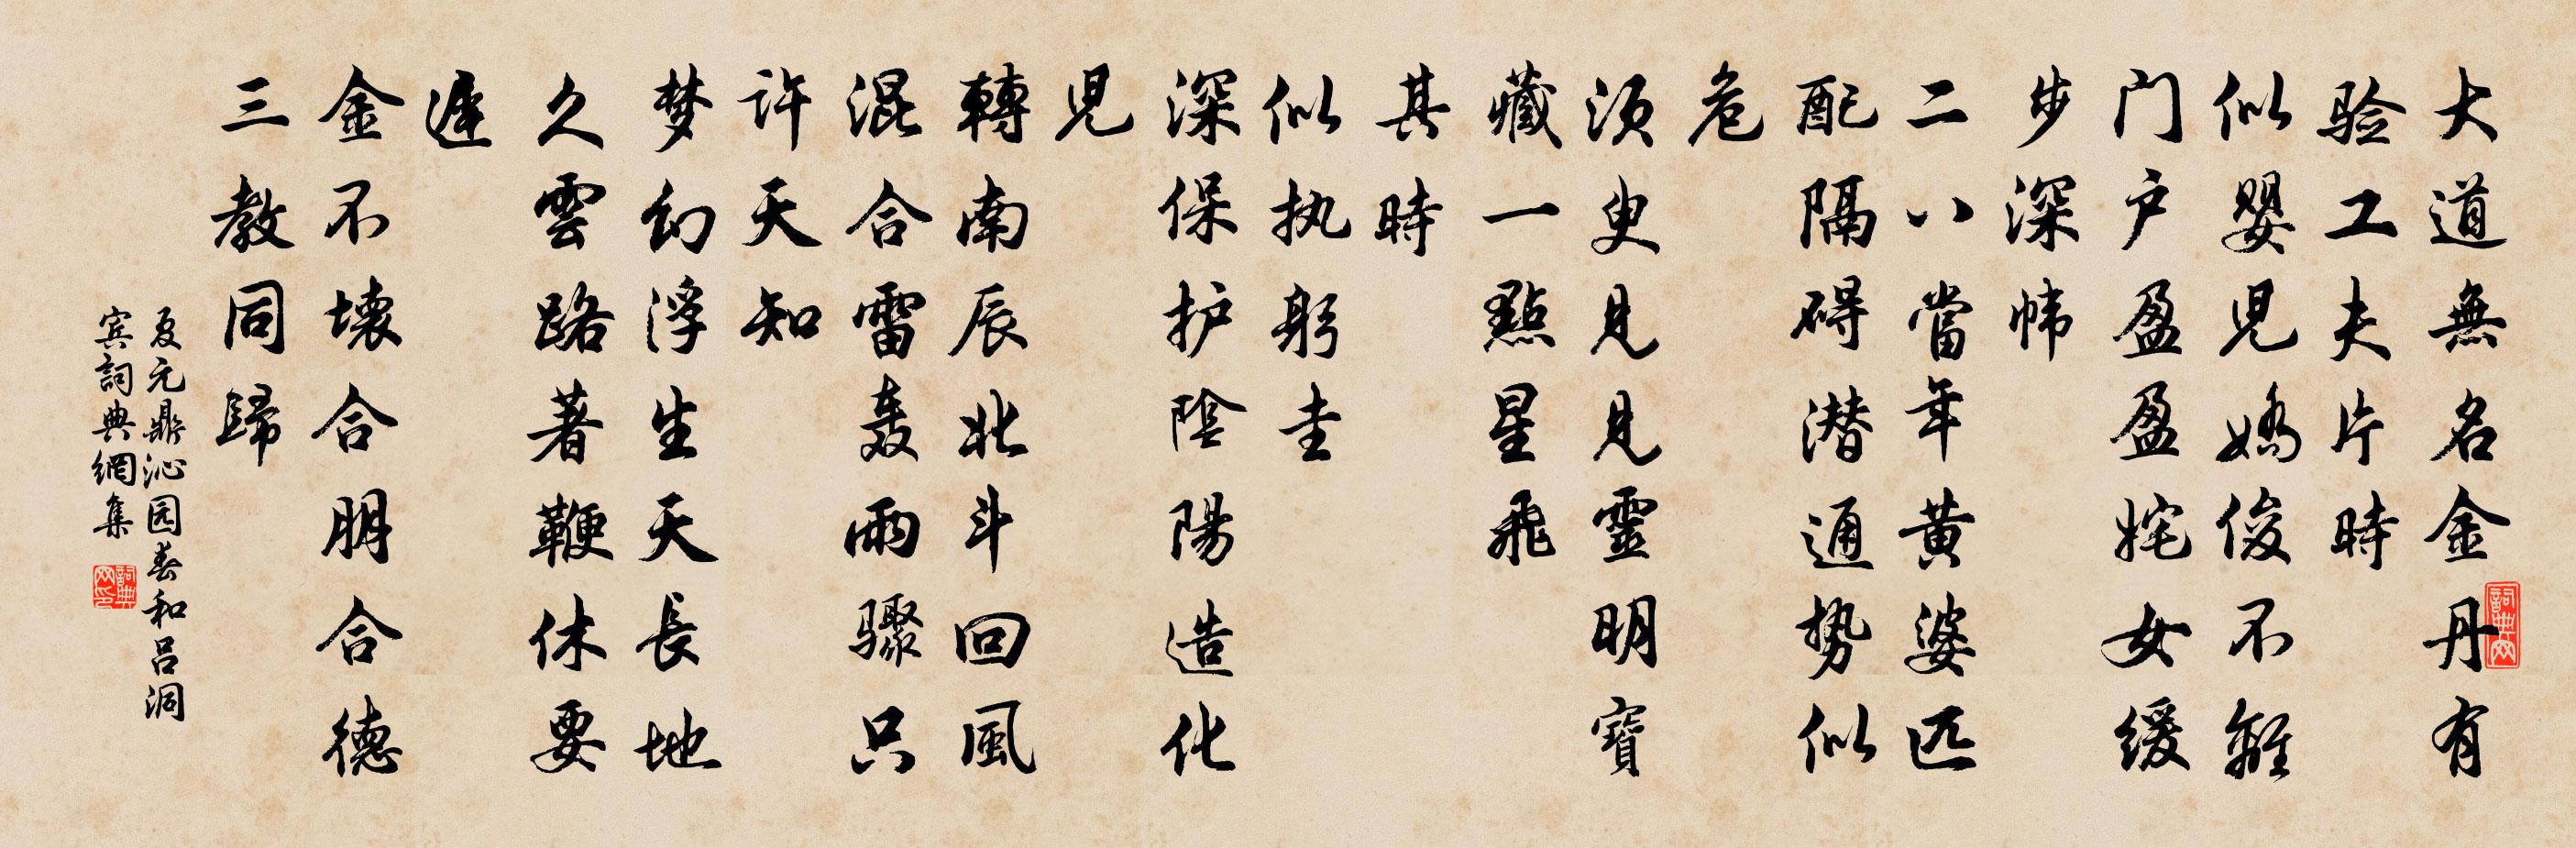 大道無名金丹有
验工夫片時
似嬰児嬌俊不離
门户盈盈姹女缓
步深帏
二八當年黄婆匹
配隔碍潜通势似
危
须臾見見靈明寶
藏一點星飛
其時
似执躬圭
深保护陰陽造化
児
轉南辰北斗回風
混合雷轰雨骤只
许天知
梦幻浮生天長地
久雲路著鞭休要
遲
金不壊合朋合德
三教同歸
夏元鼎沁园春和吕洞
宾詞典網集
詞典网
詞典网印